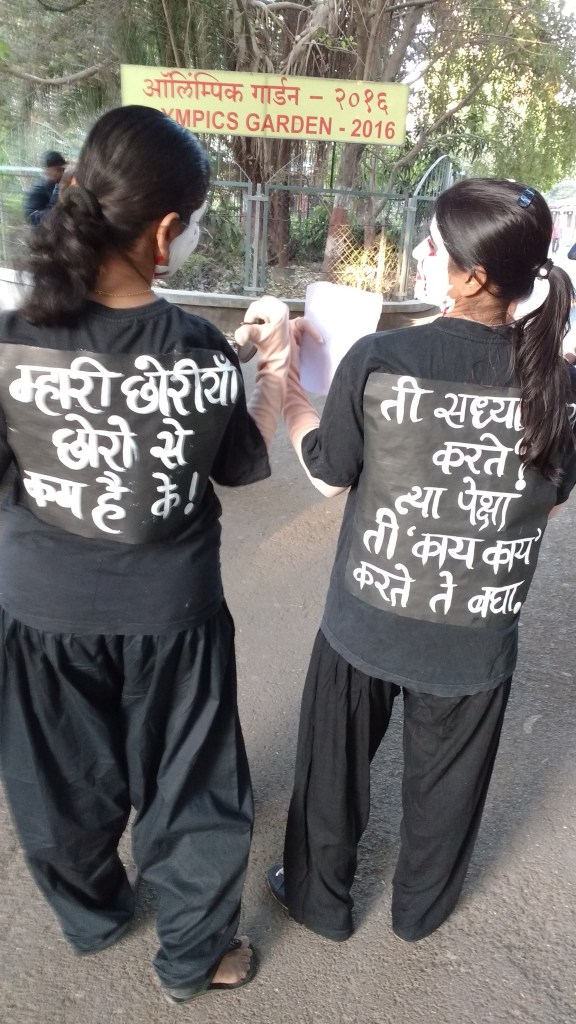 ऑलिंम्पिक गार्डन – २०१६
YMPICS GARDEN - 2016
म्हारी छोरीयाँ
छोरो से
कम है के!
ती सध्या
करते?
त्या पेक्षा
ती 'काय काय'
करते ते बघा.